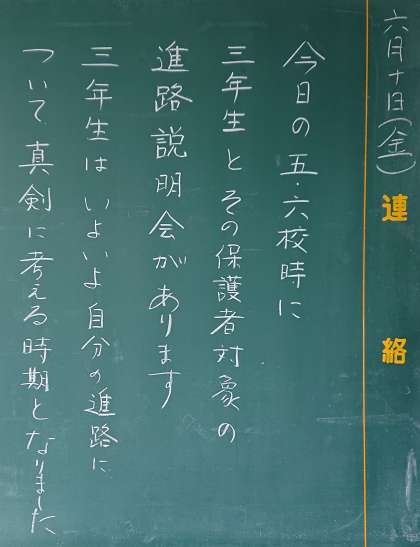 六月十日(金)
連絡
今日の五・六校時に
三年生とその保護者対象の
進路説明会があります
三年生はいよいよ自分の進路に
ついて真剣に考える時期となりました